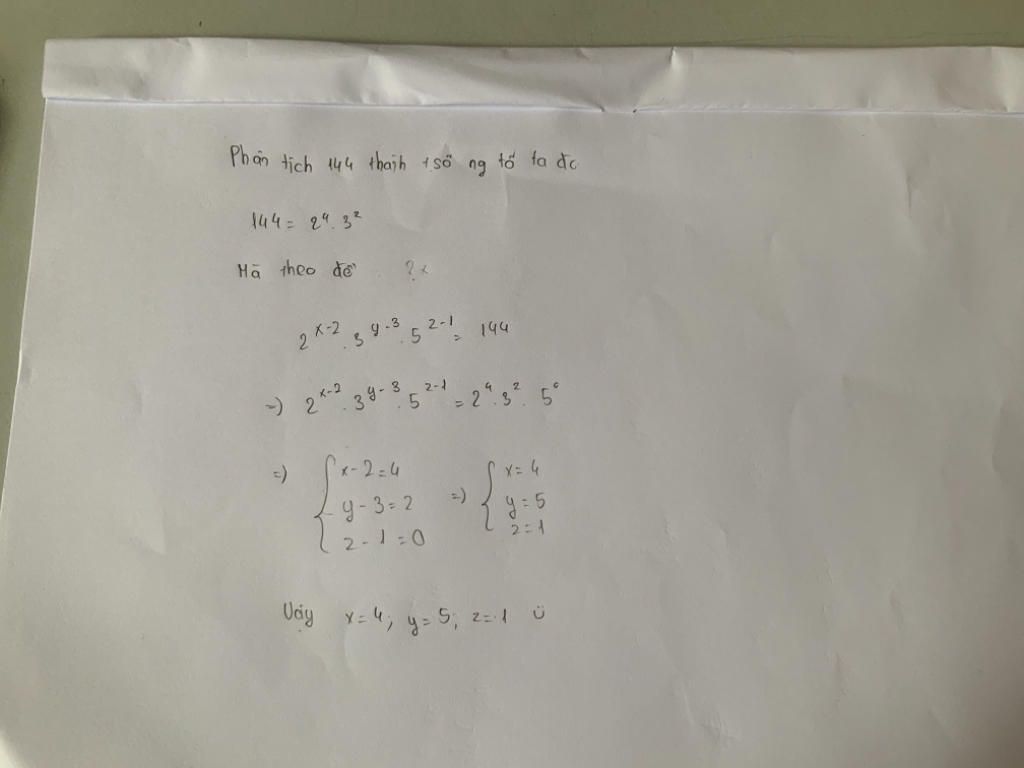 Phân tịch 144 thành tsố ng tố ta đc
144 = 2⁴ . 3²
Mà theo đề ? x
2^{x-2} . 3^{y-3} . 5^{z-1} = 144
=) 2^{x-2} . 3^{y-3} . 5^{z-1} = 2⁴ . 3² . 5⁰
=) { x-2=4 =) { x=4
y-3=2 y=5
z-1=0 z=1
Vậy x=4; y=5; z=1 ü